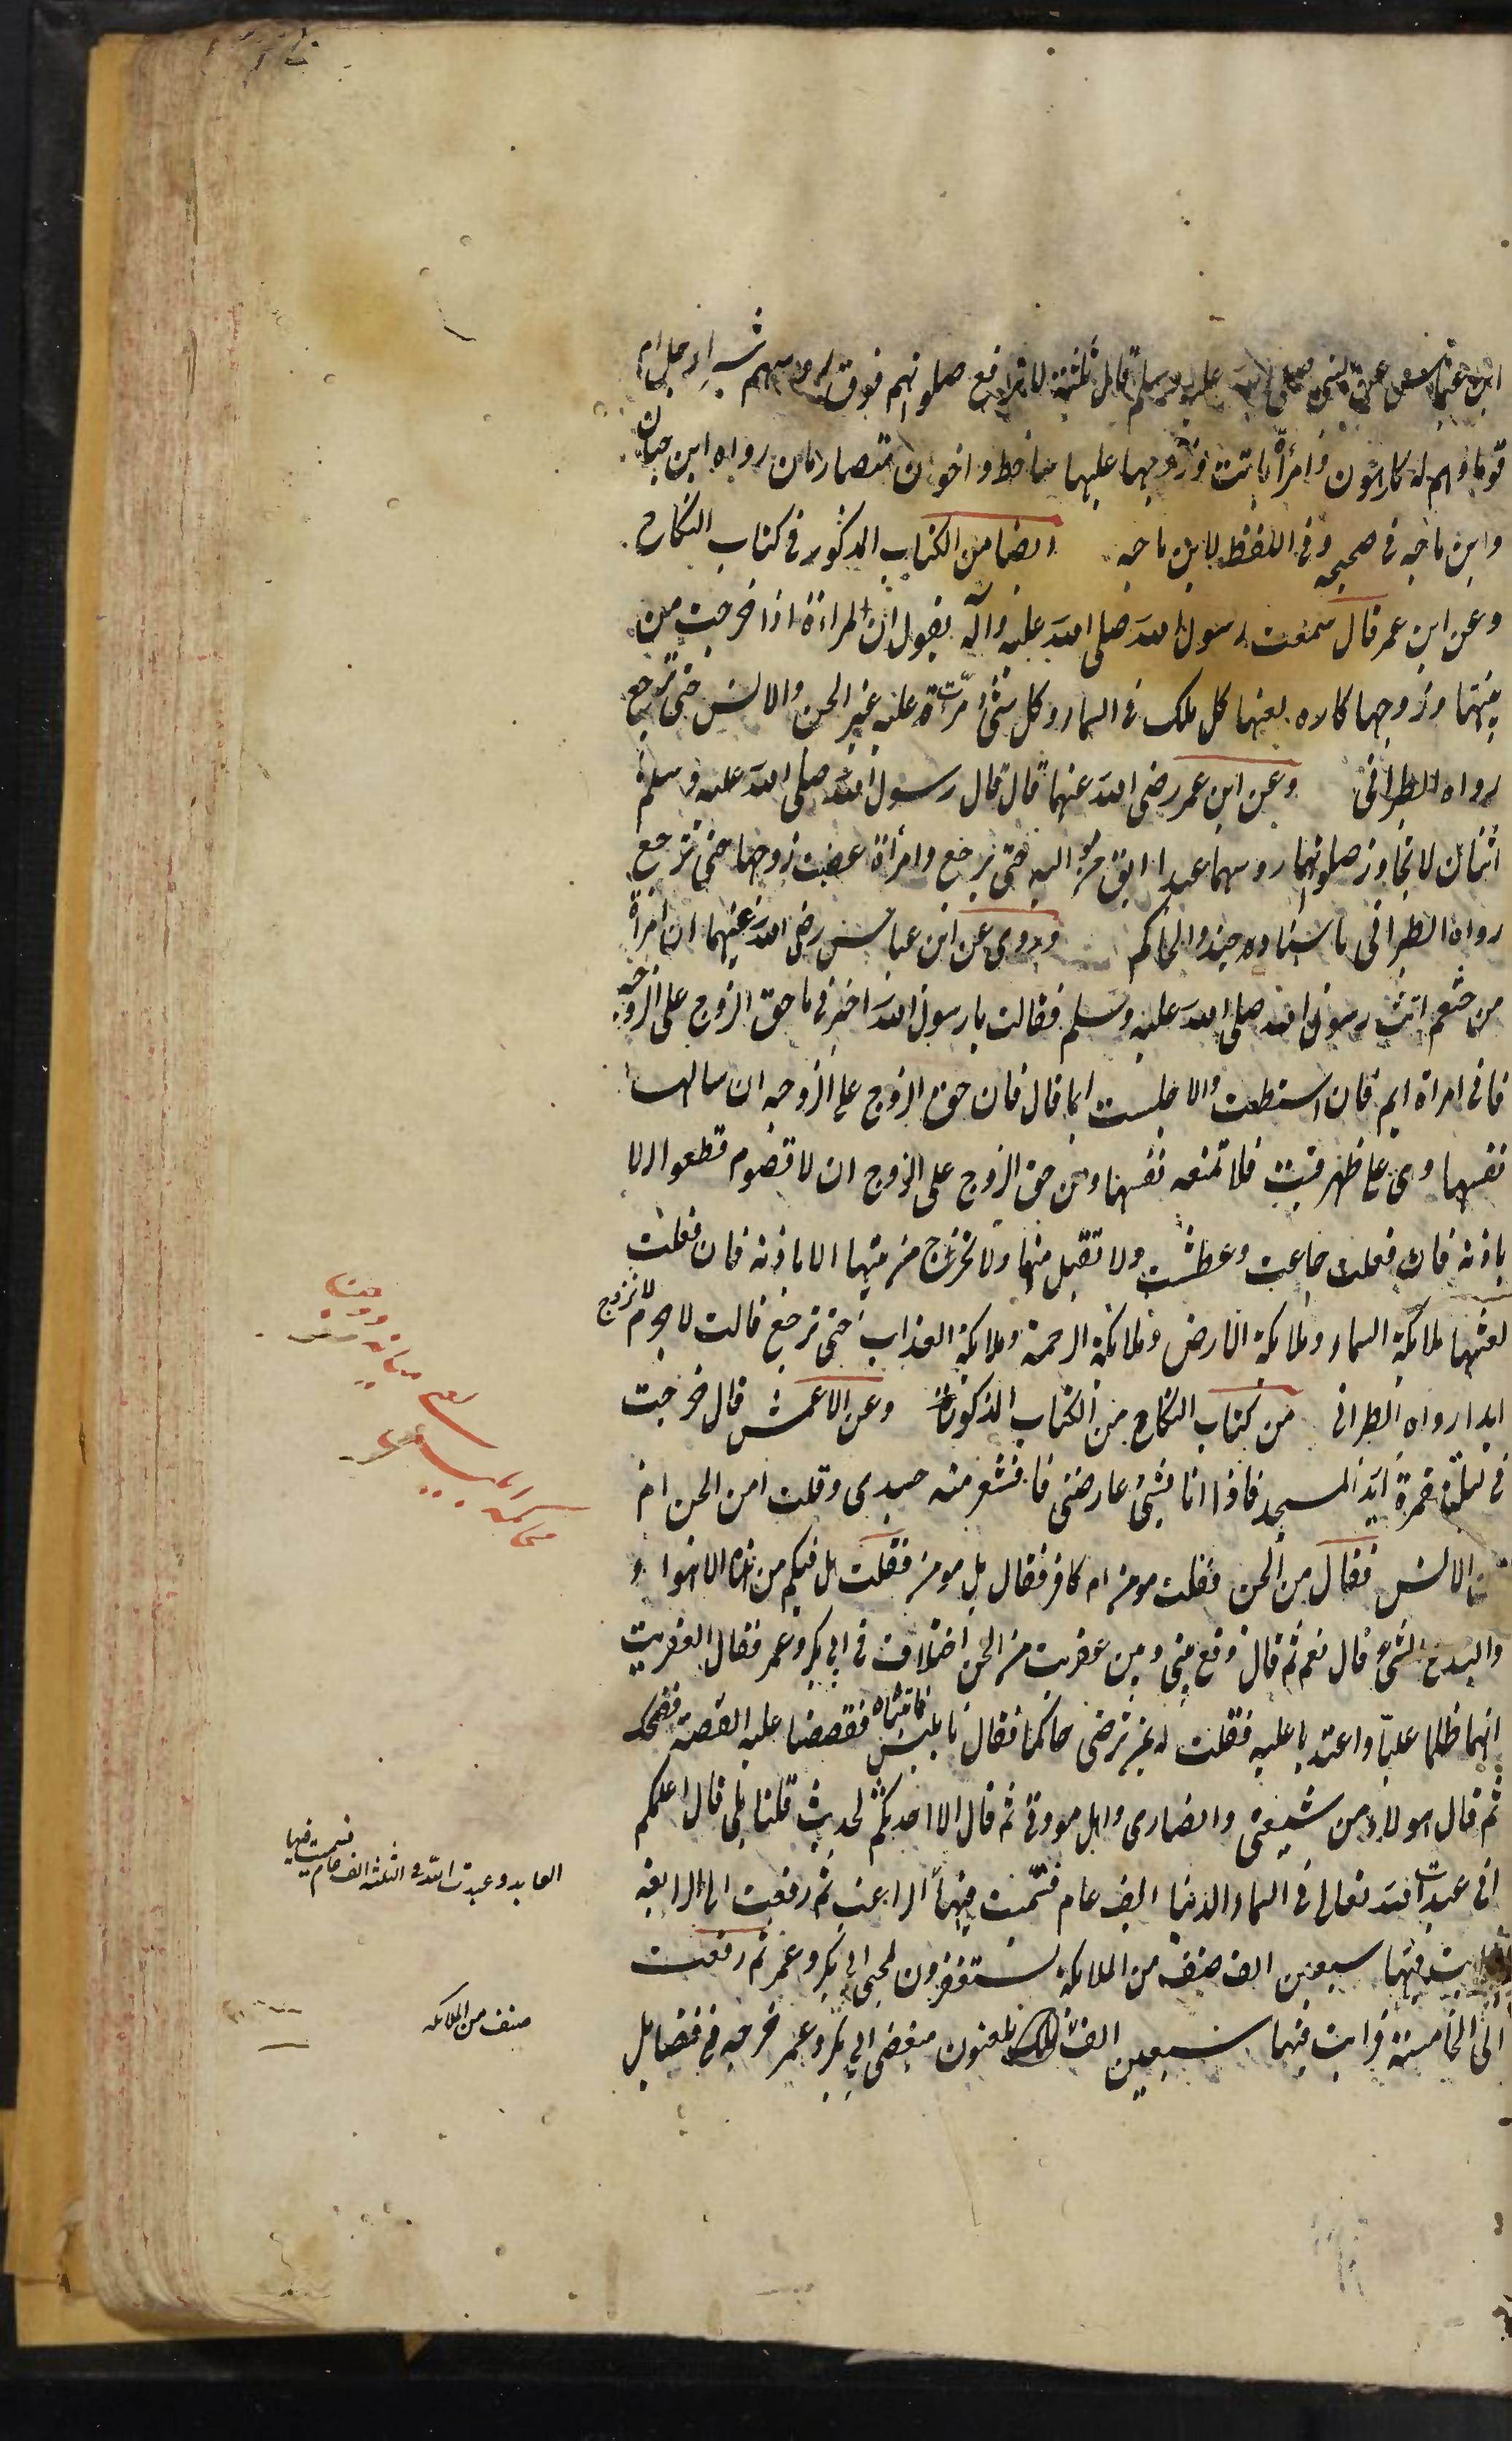 ابن عباس عن النبي صلى الله عليه وسلم قال ثلثة لا ترفع صلوتهم فوق روسهم شبرا رجل ام
قوما وهم له كارهون وامرأة باتت وزوجها عليها ساخط واخوان متصارمان رواه ابن حبان
وابن ماجه في صحيحه وفي اللفظ لابن ماجه ايضا من الكتاب المذكور في كتاب النكاح
وعن ابن عمر قال سمعت رسول الله صلى الله عليه وآله يقول ان المراة اذا خرجت من
بيتها وزوجها كاره لعنها كل ملك في السماء وكل شئ مرت عليه غير الجن والانس حتى ترجع
رواه الطبراني وعن ابن عمر رضى الله عنهما قال قال رسول الله صلى الله عليه وسلم
اثنان لا تجاوز صلوتهما روسهما عبدا ابق من مواليه حتى يرجع وامرأة عصت زوجها حتى ترجع
رواه الطبراني باسناده جيد والحاكم وروى عن ابن عباس رضى الله عنهما ان امرأة
من خثعم اتت رسول الله صلى الله عليه وسلم فقالت يا رسول الله اخبرني ما حق الزوج على الزوجه
فاني امراة ايم فان استطعت والا جلست ايما قال فان حق الزوج على الزوجه ان سالها
نفسها وهي على ظهر قتب فلا تمنعه نفسها ومن حق الزوج على الزوج ان لا تصوم تطعوا الا
باذنه فان فعلت جاعت وعطشت ولا تقبل منها ولا تخرج من بيتها الا باذنه فان فعلت
لعنتها ملائكة السماء وملائكة الارض وملائكة الرحمة وملائكة العذاب حتى ترجع قالت لا جرم لا تزوج
ابدا رواه الطبراني من كتاب النكاح من الكتاب المذكور وعن الاعمش قال خرجت
في ليلة مقمرة اريد المسجد فاذا انا بشئ عارضني فاقشعر منه جسدى وقلت امن الجن ام
من الانس فقال من الجن فقلت مومن ام كافر فقال بل مومن فقلت هل فيكم من هذه الاهواء و
والبدع شئ قال نعم ثم قال وقع بيني وبين عفريت من الجن اختلاف في ابي بكر وعمر فقال العفريت
انهما ظلما عليا واعتديا عليه فقلت له بمن ترضى حاكما فقال بابليس فاتيناه فقصصنا عليه القصة فضحك
ثم قال هولاء من شيعتي وانصارى واهل مودتي ثم قال الا احدثكم لحديث قلنا بلى قال اعلمكم
اني عبدت الله تعالى في السماء الدنيا الف عام فسميت فيها العابد وعبدت الله في الثلثه الف عام فسميت فيها
الراغب ثم رفعت الى الرابعه
فرايت فيها سبعين الف صنف من الملائكة يستغفرون لمحبى ابي بكر وعمر ثم رفعت
الى الخامسة فرايت فيها سبعين الف ملك يلعنون مبغضى ابي بكر وعمر خرجه في فضايل
صنف من الملائكه